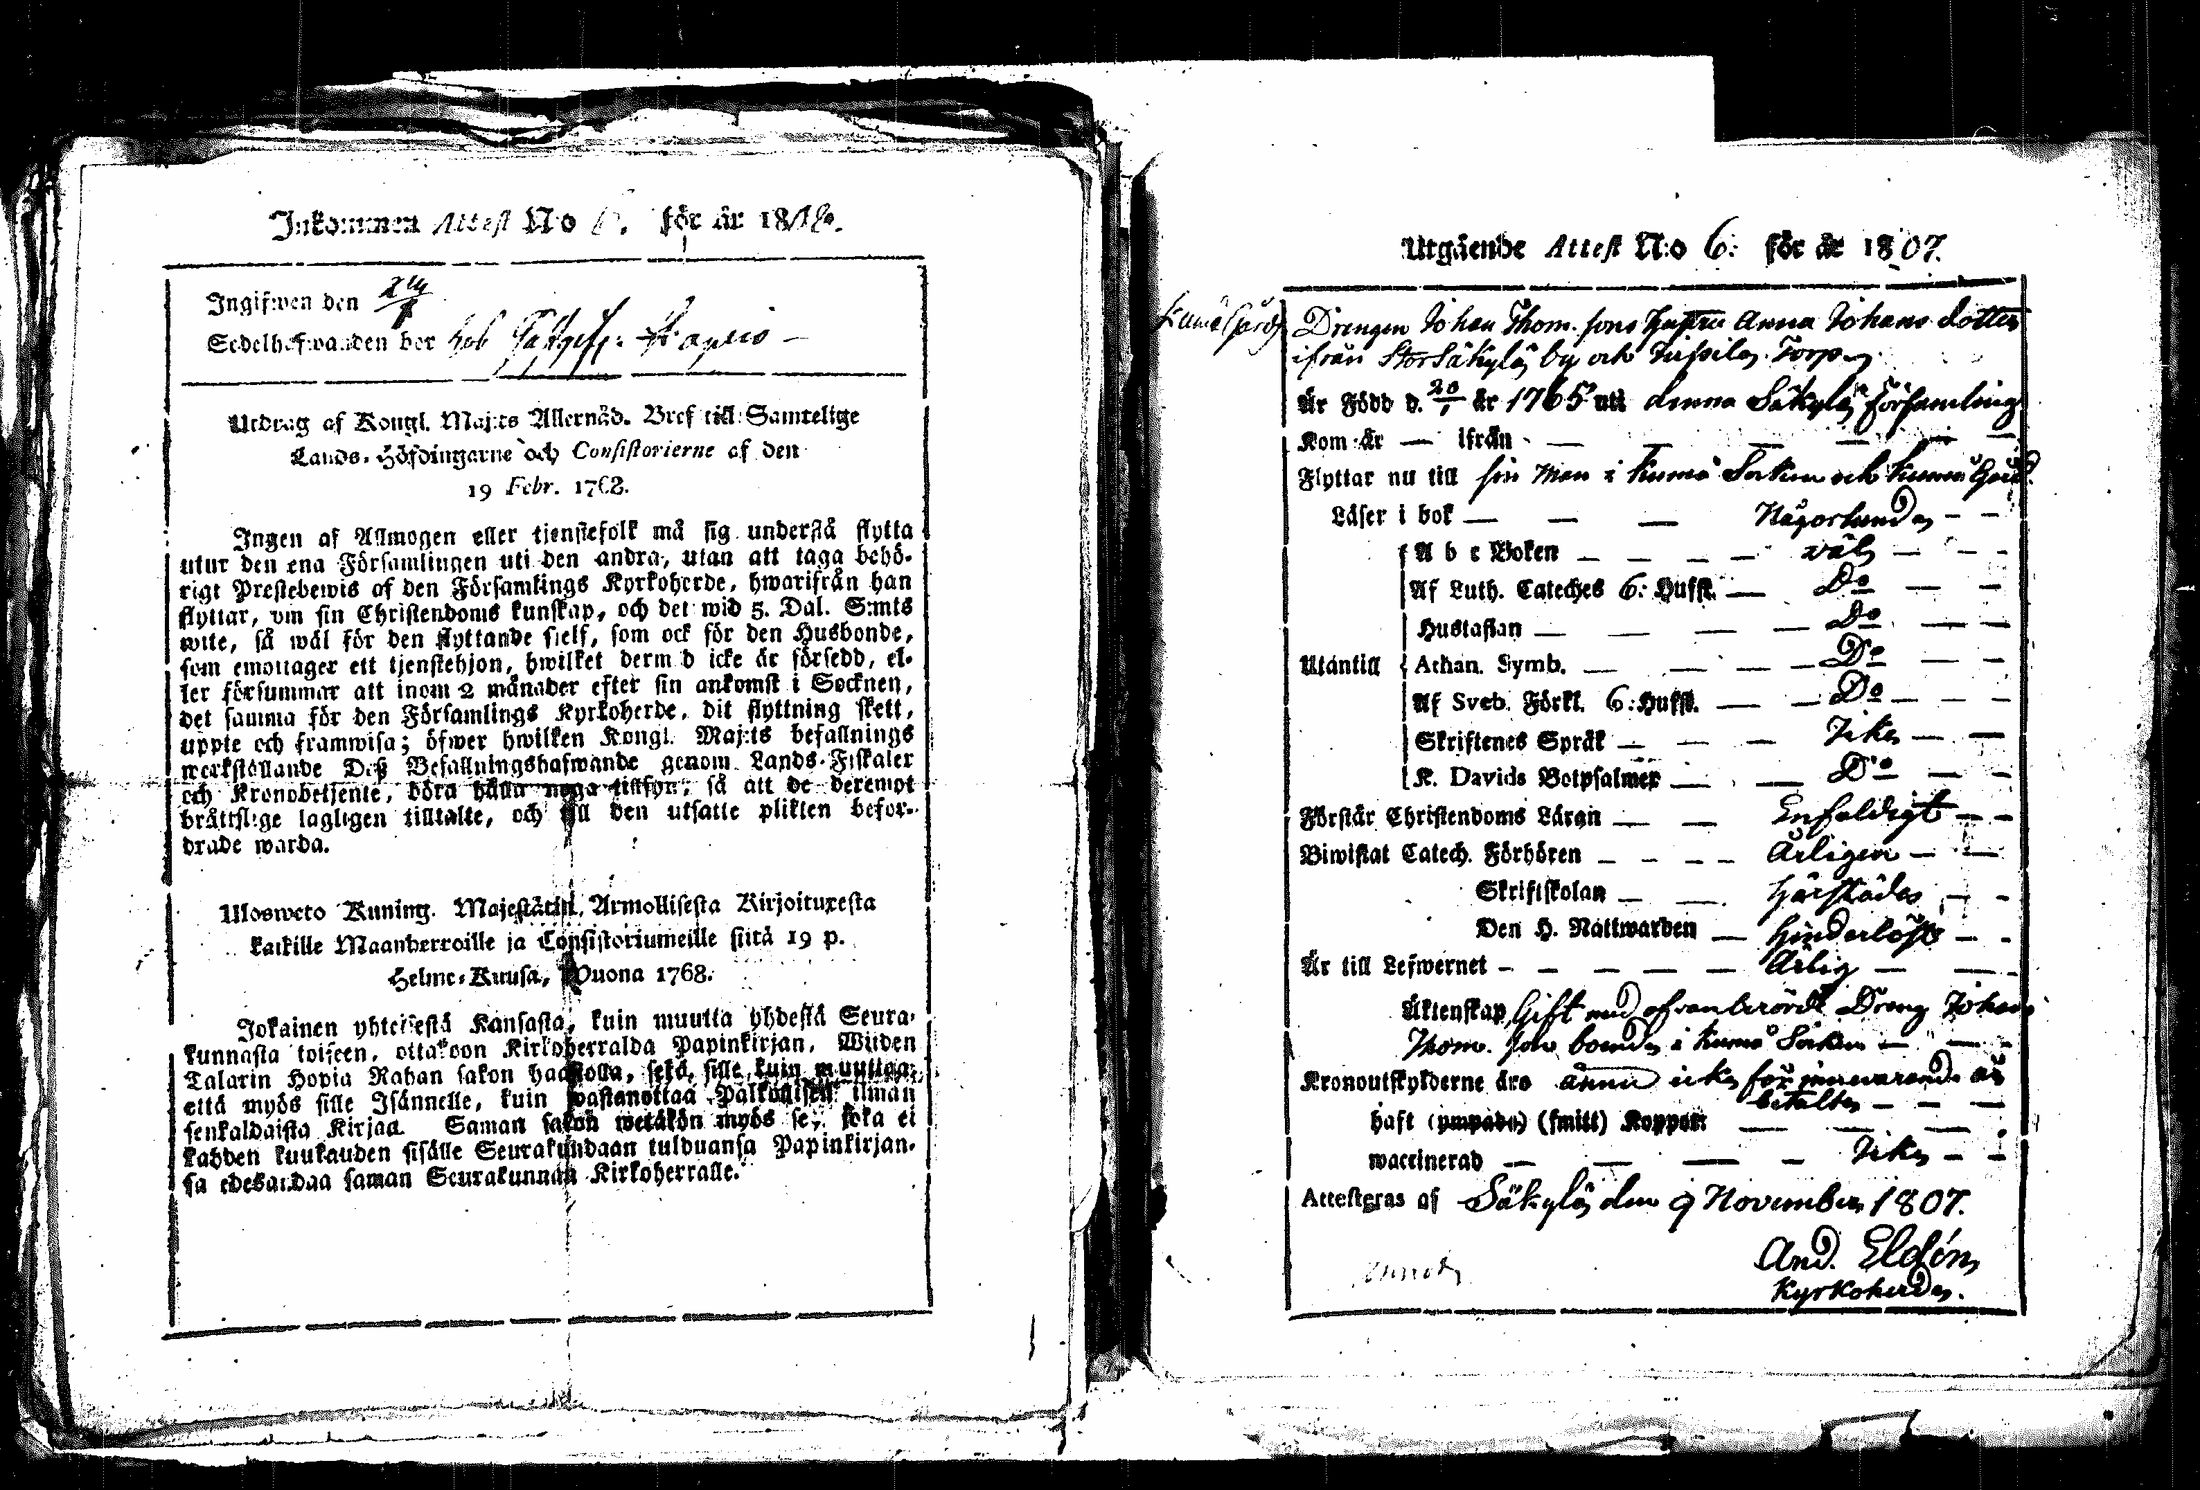 Inkommen Attest No 6. för år 18
Ingifwen den
Sedelhafwanden bor hos
Utdrag af Kongl. Maj:ts Allernåd. Bref till Samtelige
Lands-Höfdingarne och Consistorierne af den
19 Febr. 1768.
Ingen af Allmogen eller tjenstefolk må sig understå flytta
utur den ena Församlingen uti den andra, utan att taga behö-
rigt Prestebewis af den Församlings Kyrkoherde, hwarifrån han
flyttar, om sin Christendoms kunskap, och det wid 5. Dal. S:mts
wite, så wäl för den flyttande sielf, som ock för den Husbonde,
som emottager ett tjenstehjon, hwilket derm d icke är försedd, el-
ler försummar att inom 2 månader efter sin ankomst i Socknen,
det samma för den Församlings Kyrkoherde, dit flyttning skett,
uppte och framwisa; öfwer hwilken Kongl. Maj:ts befallnings
werkställande Deß Befallningshafwande genom Lands-Fiskaler
och Kronobetjente, böra hålla noga tillsyn; så att de deremot
bråttslige lagligen tilltalte, och till den utsatte plikten befor-
drade warda.
Ulosweto Kuning. Majestätin, Armollisesta Kirjoituxesta
kaikille Maanherroille ja Consistoriumeille siitä 19 p.
Helme-Kuusa, Wuona 1768.
Jokainen yhteisestä Kansasta, kuin muutta yhdestä Seura-
kunnasta toiseen, ottakoon Kirkoherralda Papinkirjan, Wiiden
Talarin Hopia Rahan sakon haastolla, sekä sille kuin muuttaa,
että myös sille Isännelle, kuin wastanottaa Palkollisen ilman
senkaldaista Kirjaa. Saman sakon wetäkön myös se, joka ei
kahden kuukauden sisälle Seurakundaan tulduansa Papinkirjan-
sa edesandaa saman Seurakunnan Kirkoherralle.
Utgående Attest No 6: för år 1807.
Kumo gård
Drengen Johan Thom. sons hustru Anna Johans dotter
ifrån StorSäkylä by och Torp
Är Född d. 20/1 år 1765 uti denna Säkylä Församling
Kom år — ifrån — — — — —
Flyttar nu till sin Man i Kumo Socken och Kumo Gård.
Läser i bok — — — Någorlunda — —
A b c Boken — — — — wäl — —
Af Luth. Cateches 6: Hufst. — Do — —
Hustaflan — — — — Do — —
Utantill Athan. Symb. — — — — Do — —
Af Sveb. Förkl. 6: Hufst. — — Do — — —
Skriftenes Språk — — — Icke — —
K. Davids Botpsalmer — — Do — —
Förstår Christendoms Läran — — Enfaldigt — —
Biwistat Catech. Förhören — — — — Årligen — —
Skriftskolan — — härstädes — —
Den H. Nattwarden — hinderlöst — —
Är till Lefwernet — — — — — Ärlig — —
Äktenskap Gift med ofvanberörde Dreng Johan
Thom. son boende i Kumo Socken — — —
Kronoutskylderne äro ännu icke för innevarande år
betalte — — —
haft (ympade) (smitt) Koppor — — —
waccinerad — — — — Icke — —
Attesteras af Säkylä den 9 November 1807.
And. Eldén
Kyrkoherde.